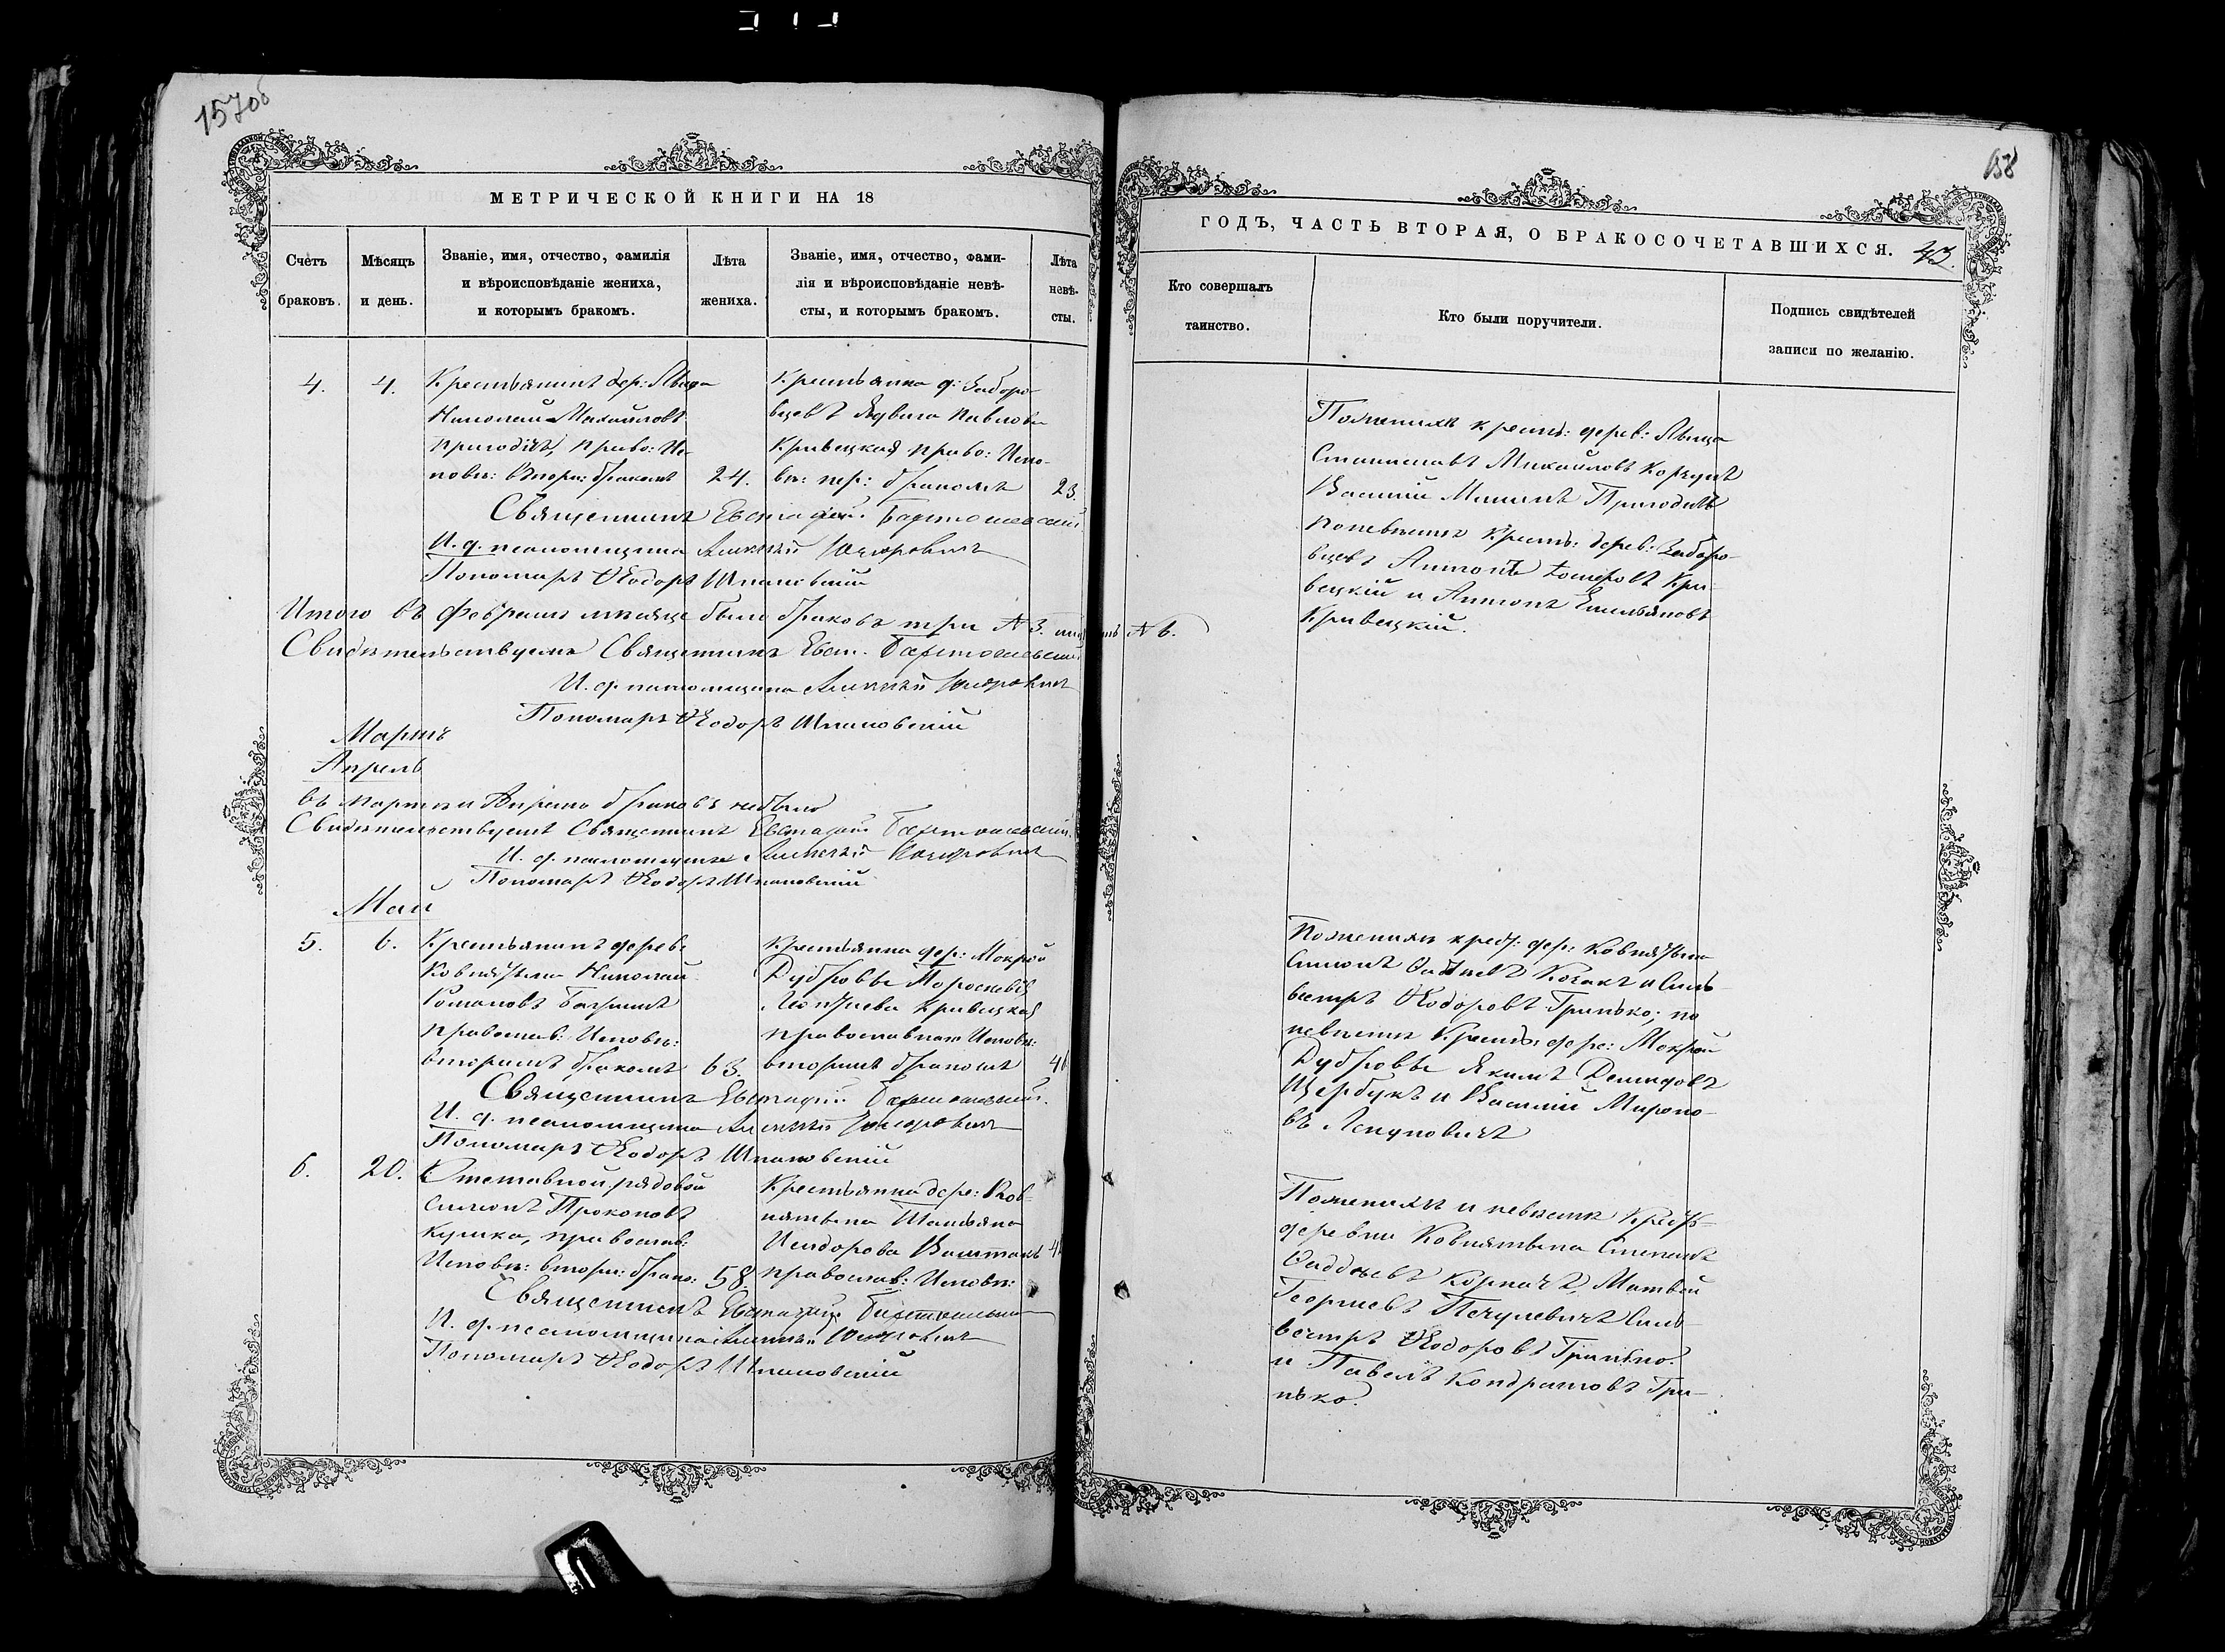 157об
МЕТРИЧЕСКОЙ КНИГИ НА 18
Счетъ браковъ.
Мѣсяцъ и день.
Званіе, имя, отчество, фамилія
и вѣроисповѣданіе жениха,
и которымъ бракомъ.
Лѣта жениха.
Званіе, имя, отчество, фами-
лія и вѣроисповѣданіе невѣ-
сты, и которымъ бракомъ.
Лѣта невѣ-
сты.
4.
4.
Крестьянинъ дер:
Николай Михайловъ
Пригодичъ, Право: Ис-
повѣ: Втор: бракомъ
24.
Крестьянка д: Заборо-
вцевъ Ядвига Павлова
Кривецкая право: Испо-
вѣ: пер: бракомъ
23.
Священникъ Евстафій
И. д. псаломщика Алексѣй
Пономарь Ѳеодоръ Шпаковскій
Итого въ Февралѣ мѣсяцѣ было браковъ три № 3.
№ 6.
Свидѣтельствуемъ Священникъ Евст.
И. д. псаломщика Алексѣй
Пономарь Ѳеодоръ Шпаковскій
Мартъ
Апрель
въ Мартѣ и Апрелѣ браковъ не было
Свидѣтельствуемъ Священникъ Евстафій
И. д. псаломщика Алексѣй
Пономарь Ѳеодоръ Шпаковскій
Май
5.
6.
Крестьянинъ дерев:
Ковнятына Николай
Романовъ
православ: Исповѣ:
вторымъ бракомъ
63.
Крестьянка дер: Мокрой
Дубровы
Кривецкая
православнаго Исповѣ:
вторымъ бракомъ
Священникъ Евстафій
И. д. псаломщика Алексѣй
Пономарь Ѳеодоръ Шпаковскій
6.
20.
Отставной рядовой
Симонъ Прокоповъ
Кулика, православ:
Исповѣ: втор: брако:
58.
Крестьянка дере: Ков-
нятына Татьяна
Исидорова
православ: Исповѣ:
Священникъ Евстафій
И. д. псаломщика Алексѣй
Пономарь Ѳеодоръ Шпаковскій
158
ГОДЪ, ЧАСТЬ ВТОРАЯ, О БРАКОСОЧЕТАВШИХСЯ.
43.
Кто совершалъ
таинство.
Кто были поручители.
Подпись свидѣтелей
записи по желанію.
По женихѣ крест: дерев:
Станиславъ Михайловъ
Василій Пригодичъ
по невѣстѣ Крест: дерев: Заборо-
вцевъ Антонъ Кри-
вецкій и Антонъ Емельяновъ
Кривецкій.
По женихѣ крест: дер: Ковнятына
Симонъ и Силь-
вестръ Ѳеодоровъ Гринько; по
невѣстѣ Крест: дере: Мокрой
Дубровы Якимъ Демидовъ
Щербукъ и Василій Мироно-
въ
По женихѣ и невѣстѣ Крест:
деревни Ковнятына Степанъ
Ѳаддѣевъ Матвей
Георгіевъ Печулевичъ Силь-
вестръ Ѳеодоровъ Гринько
и Павелъ Кондратовъ Гри-
нько.